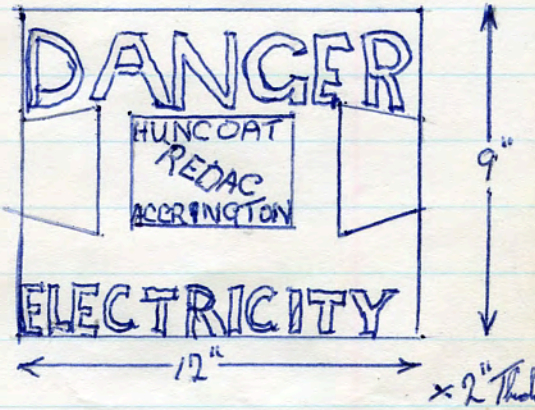 DANGER
HUNCOAT
REDAC
ACCRINGTON
ELECTRICITY
9"
12"
× 2"